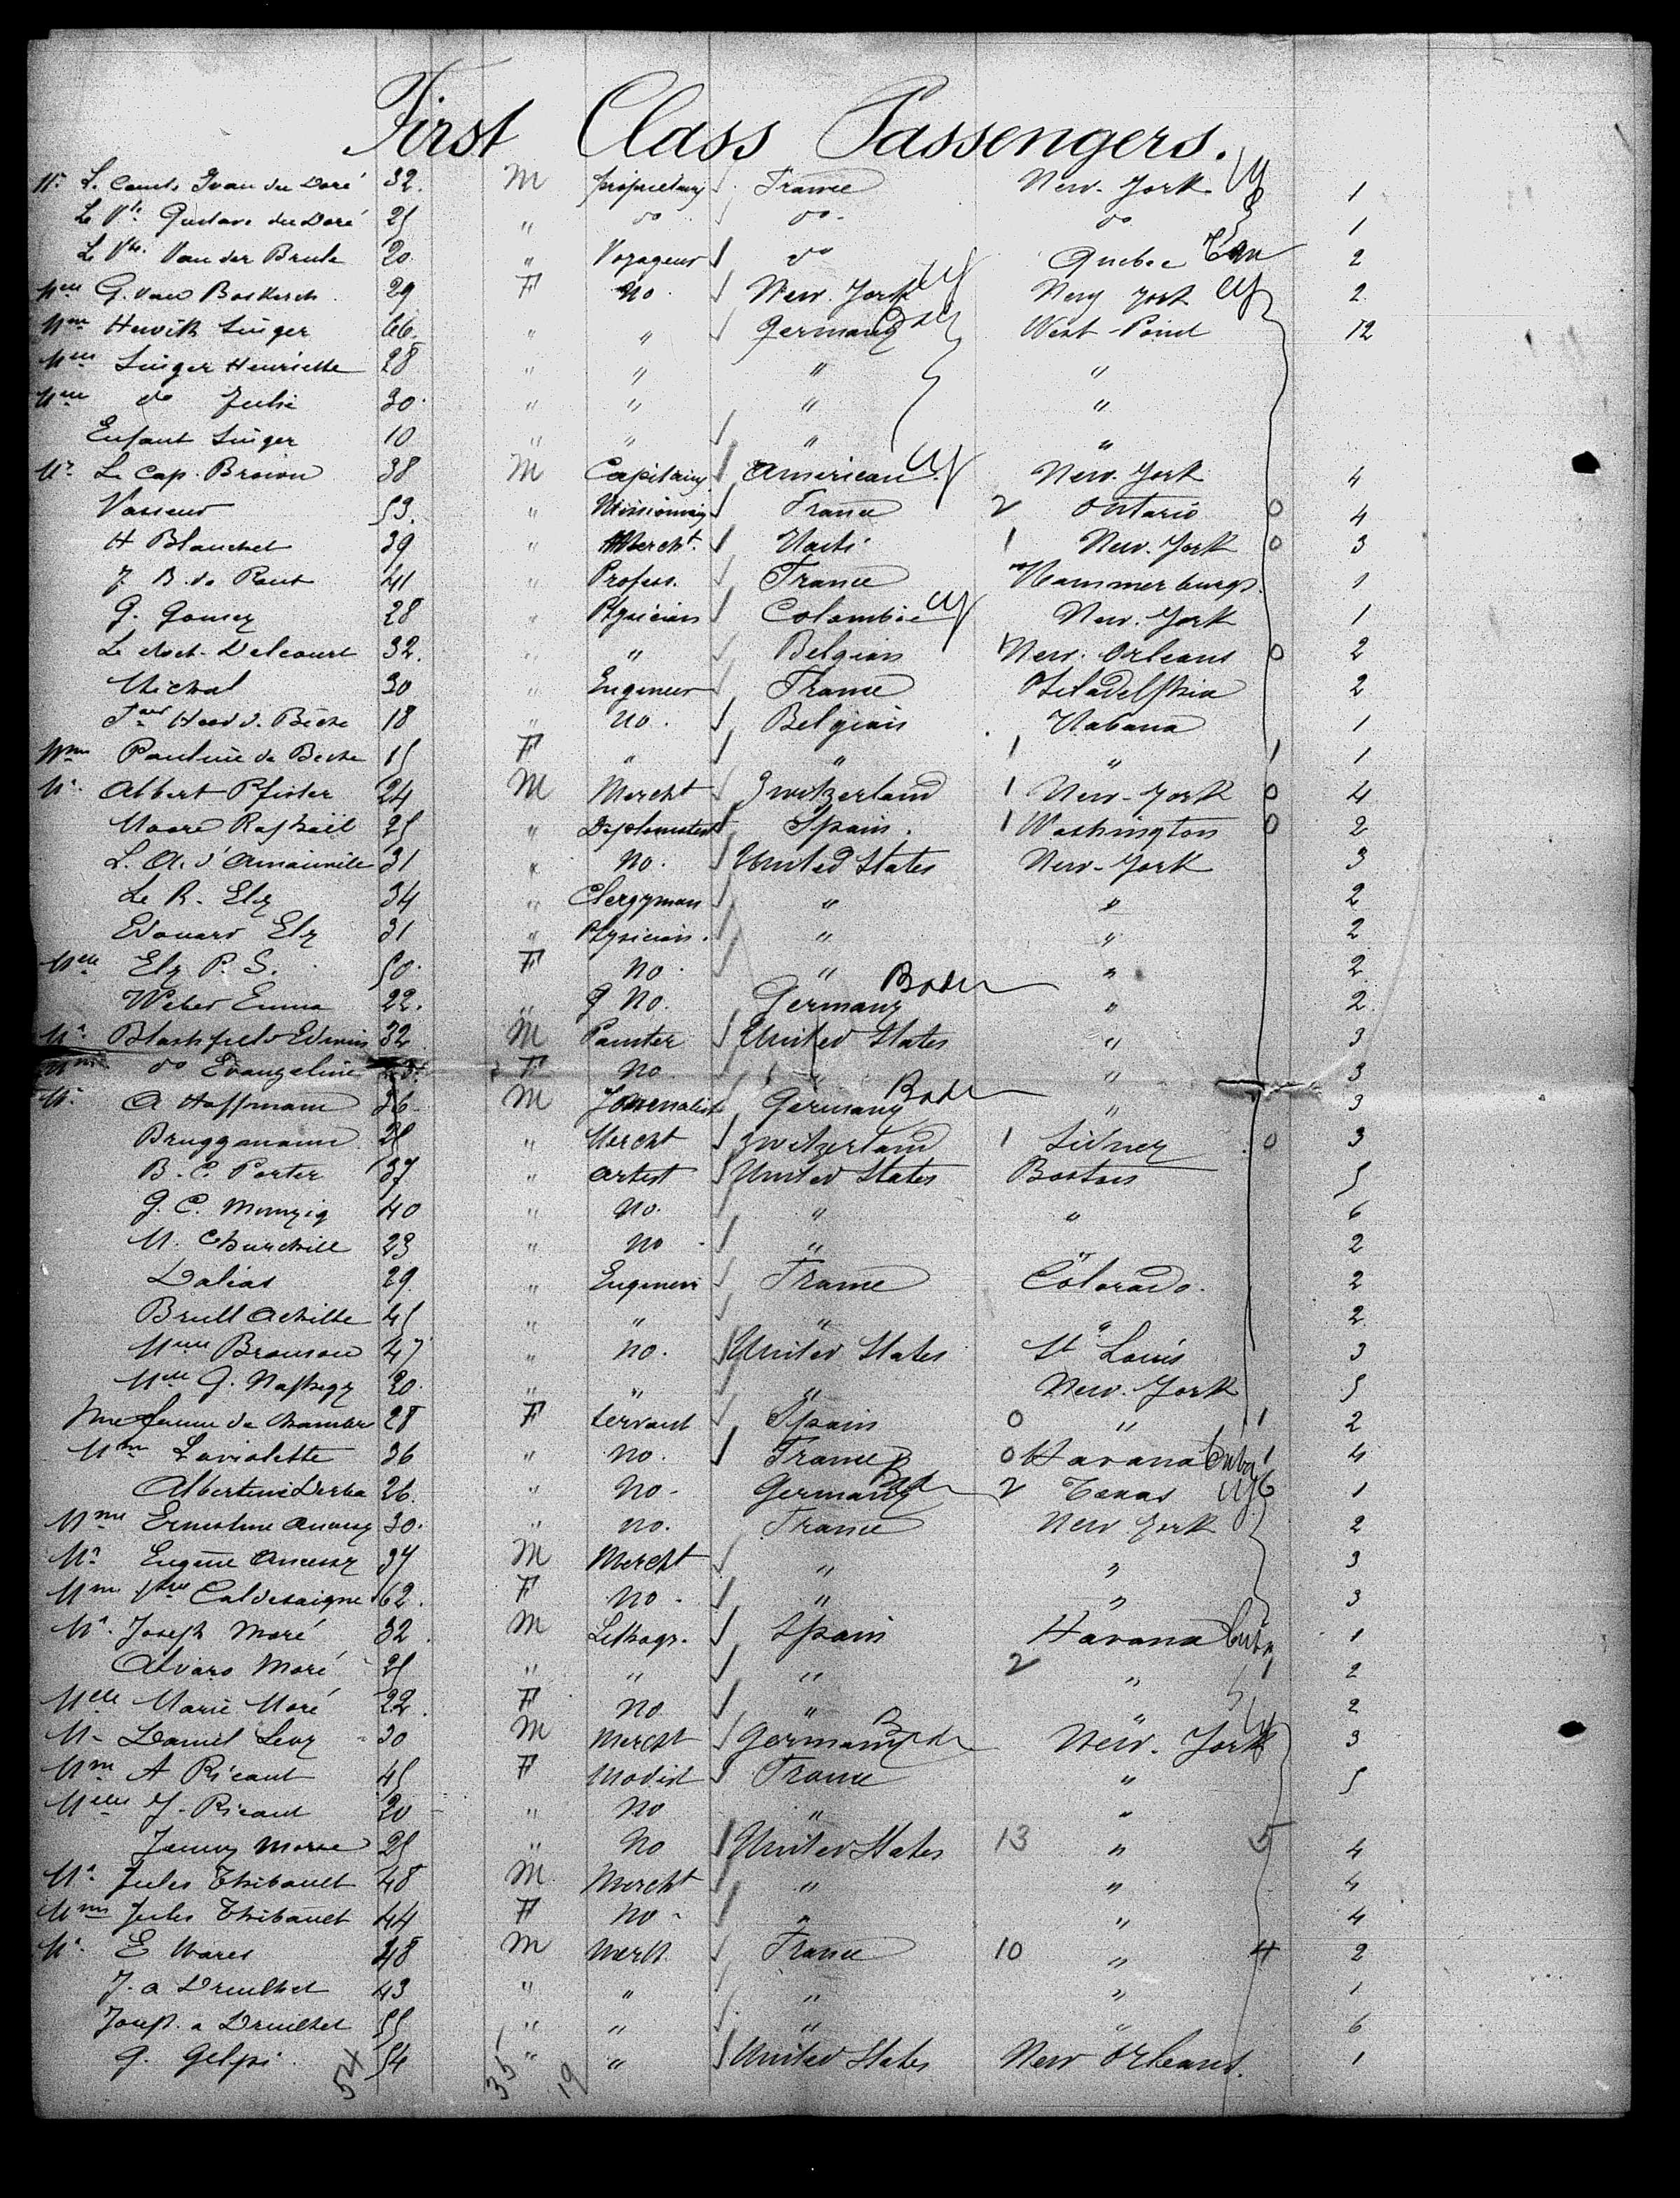 First Class Passengers.
Mr. L. Comte Yvan du Doré 32. M proprietary France New-York Cy 1
Le Vte. Gustave du Doré 25 " do do- do 1
Le Vte. Van der Brule 20 " Voyageur do Quebec Can 2
Melle G. van Boskerck 29 F No. New. York Cy New York Cy 2
Mme Singer 66. " " Germany West-Point 12
Melle Singer Henriette 28 " " " "
Melle do Julie 30. " " " "
Enfant Singer 10 " " " "
Mr. L. Cap. Brown 38 M Capitaing American Cy New. York 4
Vasseur 53. " Missionary France 2 Ontario 0 4
H Blanchet 39 " Mercht. Haiti 1 New. York 0 3
J. B. de Pont 41 " Profess. France Hammerburgs. 1
G. Gomez 28 " Physician Colombie Cy New. York 1
Le Doct. Delcourt 32. " " Belgian 1 New. Orleans 0 2
Michal 30 " Engineer France Philadelphia 2
18 " No. Belgian Habana 1
Pauline de Beche 15 F " " 1 " 1 1
Mr. Albert Pfister 24 M Mercht Zwitzerland 1 New-York 0 4
Moore Raphaël 25 " Diplomatist Spain. 1 Washington 0 2
L. A. d' 31 " No. United States New-York 3
Le R. Ely 34 " Clergyman " " 2
Edouard Ely 31 " Physician. " " 2
Melle Ely P. S. 50. F No. " " 2
Weber Emma 22. " No. Germany Baden " 2
Mr. Blashfield Edwin 32 M Painter United States " 3
Mme do Evangeline F No. " 3
Mr. A Hoffmann 36 M Journalist Germany Baden " 3
Bruggmann 25 " Mercht Zwitzerland 1 Sidney 0 3
B. C. Porter 37 " Artist United States Boston 5
G. C. Munzig 40 " No. " " 6
M. Churchill 23 " No - " " 2
Dalias 29 " Engineer France Colorado. 2
Brull Achille 45 " " " " 2
Mme Bronson 47 " No. United States St Louis 3
Melle G. Naphegy 20. " " " New. York 5
femme de chambre 28 F Servant Spain 0 " 1 2
Mme Laviolette 36 " No. France 0 Havana Cuba 1 4
Albertine 26. " No- Germany 2 Texas Cy 6 1
Mme Ernestine 30. " No. France New York 2
Mr. Eugène 37 M Mercht " " 3
Mme Vve Caldesaigne 62. F No - " " 3
Mr. Joseph Moré 32. M Lithogr. Spain Havana Cuba 1
Alvaro Moré 25 " " " 2 " 1 2
Melle Marie Moré 22. F No " " 2
Mr Daniel Levy 30 M Mercht Germany New. York 3
Mme A Ricaut 45 F Modist France " 5
Melle J. Ricaut 20 " No " "
Jenny Morse 25 " No United States 13 " 5 4
Mr. Jules Thibault 48 M Mercht " " 4
Mme Jules Thibault 44 F No - " " 4
Mr. E Mares 48 M Mercht. France 10 " 4 2
J. A Druilhet 43 " " " " 1
Joseph. A Druilhet 55 " " " " 6
G. Gelpi. 54 " " United States New Orleans. 1
54 35 19